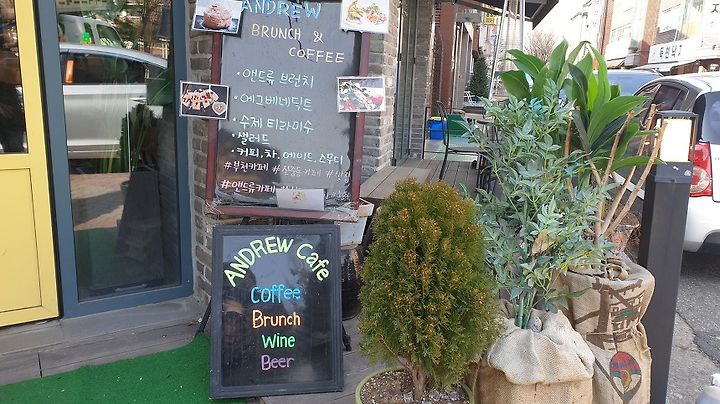 ANDREW
BRUNCH &
COFFEE
· 앤드류 브런치
· 에그베네딕트
· 수제 티라미수
· 샐러드
· 커피, 차, 에이드, 스무디
#부천카페 #신중동카페 #맛집
#앤드류카페
ANDREW Cafe
Coffee
Brunch
Wine
Beer